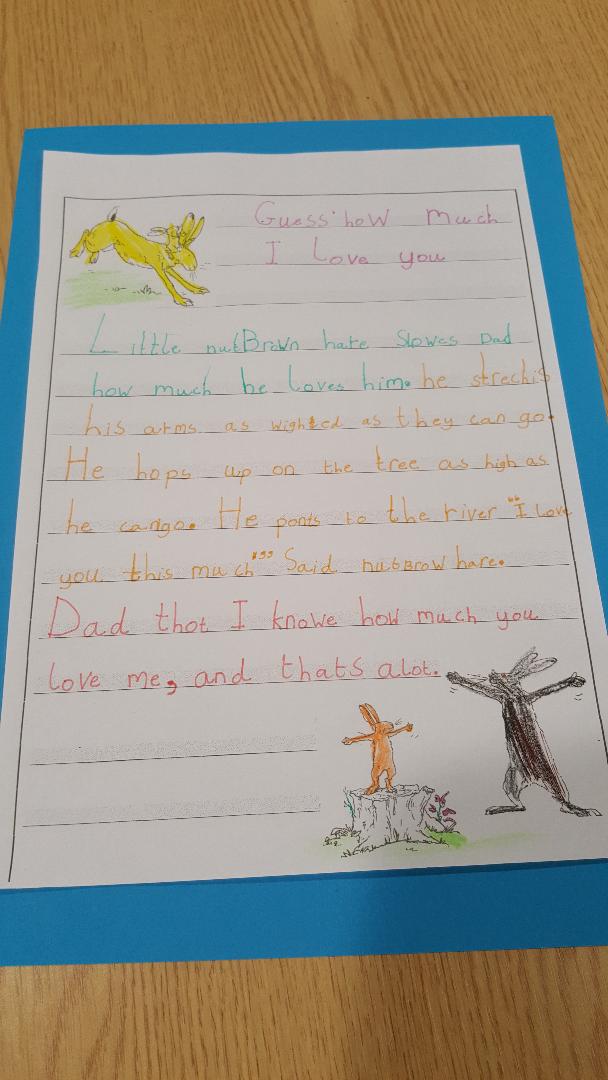 Guess how much
I Love you
Little nutBrown hare Slowes Dad
how much he loves him. he strechis
his arms as wighted as they can go.
He hops up on the tree as high as
he cango. He ponts to the river "I Love
you this much" Said nutBrow hare.
Dad thot I knowe how much you
love me, and thats alot.